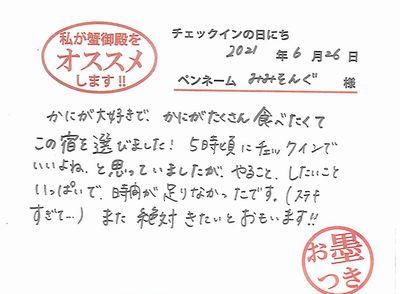 私が蟹御殿を
オススメ
します!!
チェックインの日にち
2021 年 6 月 26 日
ペンネーム みみそんぐ 様
かにが大好きで、かにがたくさん食べたくて
この宿を選びました! 5時頃にチェックインで
いいよね、と思っていましたが、やること、したいこと
いっぱいで、時間が足りなかったです。(ステキ
すぎて…) また絶対きたいとおもいます!!
お墨
つき